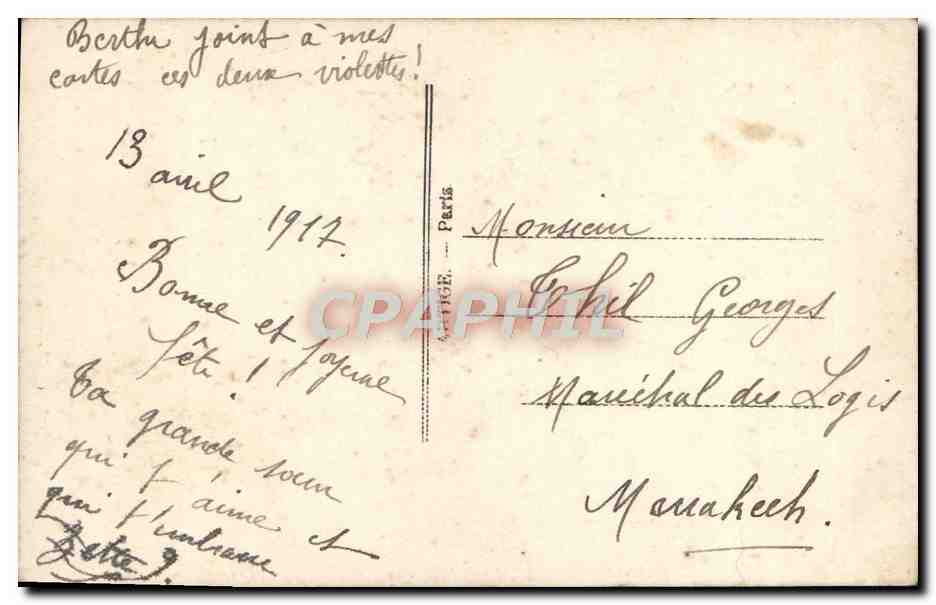 Berthe joint à mes
cartes ces deux violettes!
13
avril
1917.
Bonne et joyeuse
fête!
Ta grande sœur
qui t'aime et
qui t'embrasse
Zette
Paris
CPAPHIL
Monsieur
Thil Georges
Maréchal des Logis
Marrakech.